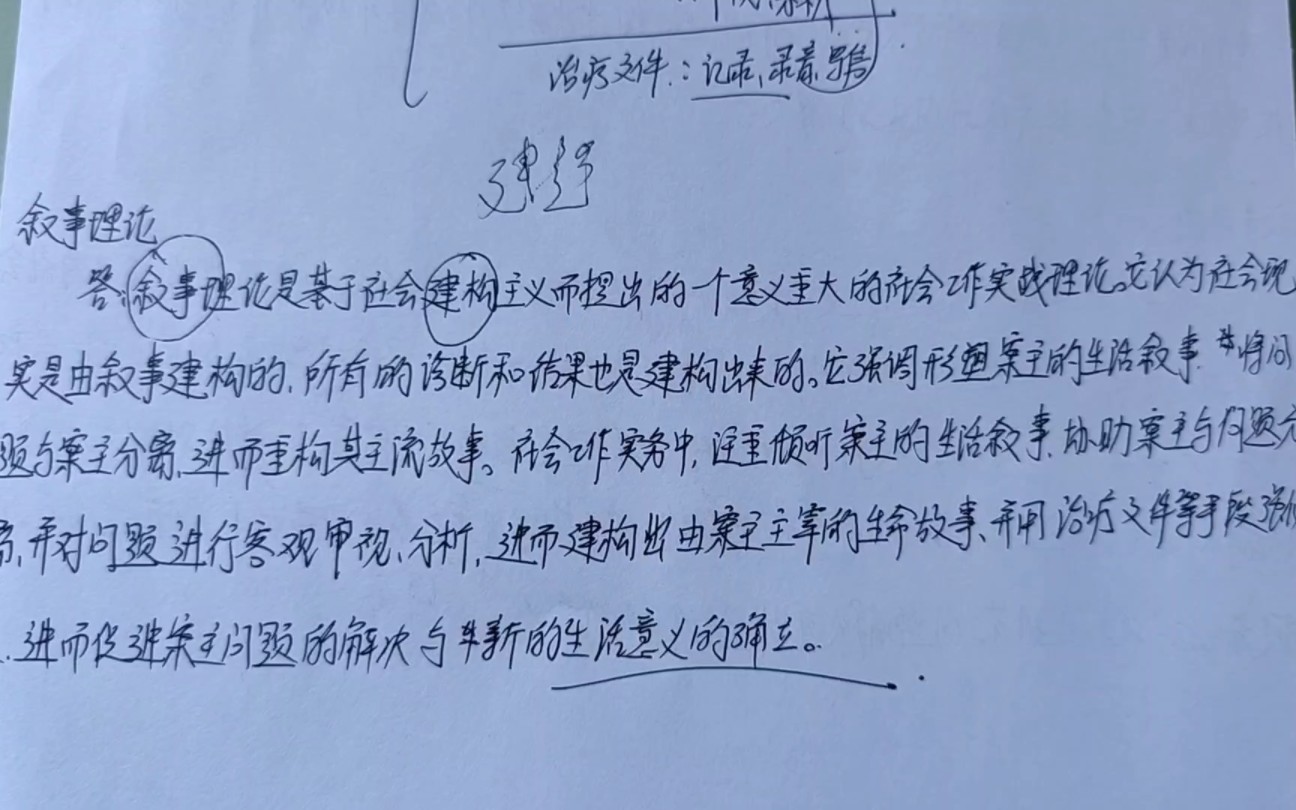 治疗文件:记录、录音、
叙事理论
答:叙事理论是基于社会建构主义而提出的一个意义重大的社会工作实践理论。它认为社会现
实是由叙事建构的,所有的诊断和结果也是建构出来的。它强调形塑案主的生活叙事,将问
题与案主分离,进而重构其主流故事。社会工作实务中,注重倾听案主的生活叙事,协助案主与问题分
离,并对问题进行客观审视、分析,进而建构出由案主主宰的生命故事,并用治疗文件等手段
进而促进案主问题的解决与新的生活意义的确立。